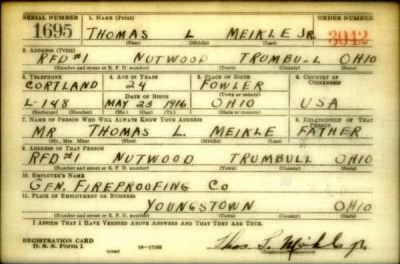 SERIAL NUMBER 1. NAME (Print) ORDER NUMBER
1695 THOMAS L MEIKLE JR. 3042
(First) (Middle) (Last)
2. ADDRESS (Print)
RFD #1 NUTWOOD TRUMBULL OHIO
(Number and street or R. F. D. number) (Town) (County) (State)
3. TELEPHONE 4. AGE IN YEARS 5. PLACE OF BIRTH 6. COUNTRY OF CITIZENSHIP
CORTLAND 24 FOWLER
DATE OF BIRTH (Town or county)
L-148 MAY 23 1916 OHIO USA
(Exchange) (Number) (Mo.) (Day) (Yr.) (State or country)
7. NAME OF PERSON WHO WILL ALWAYS KNOW YOUR ADDRESS 8. RELATIONSHIP OF THAT PERSON
MR THOMAS L. MEIKLE FATHER
(Mr., Mrs., Miss) (First) (Middle) (Last)
9. ADDRESS OF THAT PERSON
RFD #1 NUTWOOD TRUMBULL OHIO
(Number and street or R. F. D. number) (Town) (County) (State)
10. EMPLOYER'S NAME
GEN. FIREPROOFING CO
11. PLACE OF EMPLOYMENT OR BUSINESS
YOUNGSTOWN OHIO
(Number and street or R. F. D. number) (Town) (County) (State)
I AFFIRM THAT I HAVE VERIFIED ABOVE ANSWERS AND THAT THEY ARE TRUE.
REGISTRATION CARD
D. S. S. Form 1 Thos L. Meikle Jr.
(Registrant's signature)